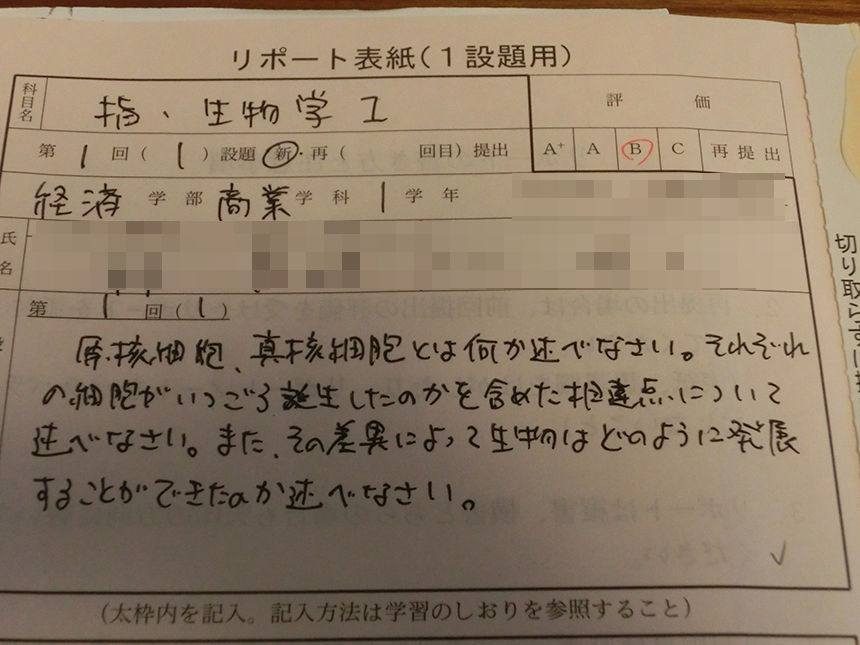 リポート表紙(1設題用)
科目名 指、生物学I 評価
第1回(1)設題 新・再( 回目)提出 A⁺ A B C 再提出
経済学部 商業学科 1学年
氏名
第1回(1)
原核細胞、真核細胞とは何か述べなさい。それぞれ
の細胞がいつごろ誕生したのかを含めた相違点について
述べなさい。また、その差異によって生物はどのように発展
することができたのか述べなさい。
(太枠内を記入。記入方法は学習のしおりを参照すること)
切り取らずに